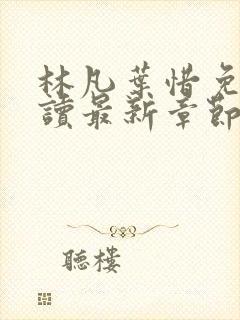 林凡葉惜免
讀最新章節
聽樓